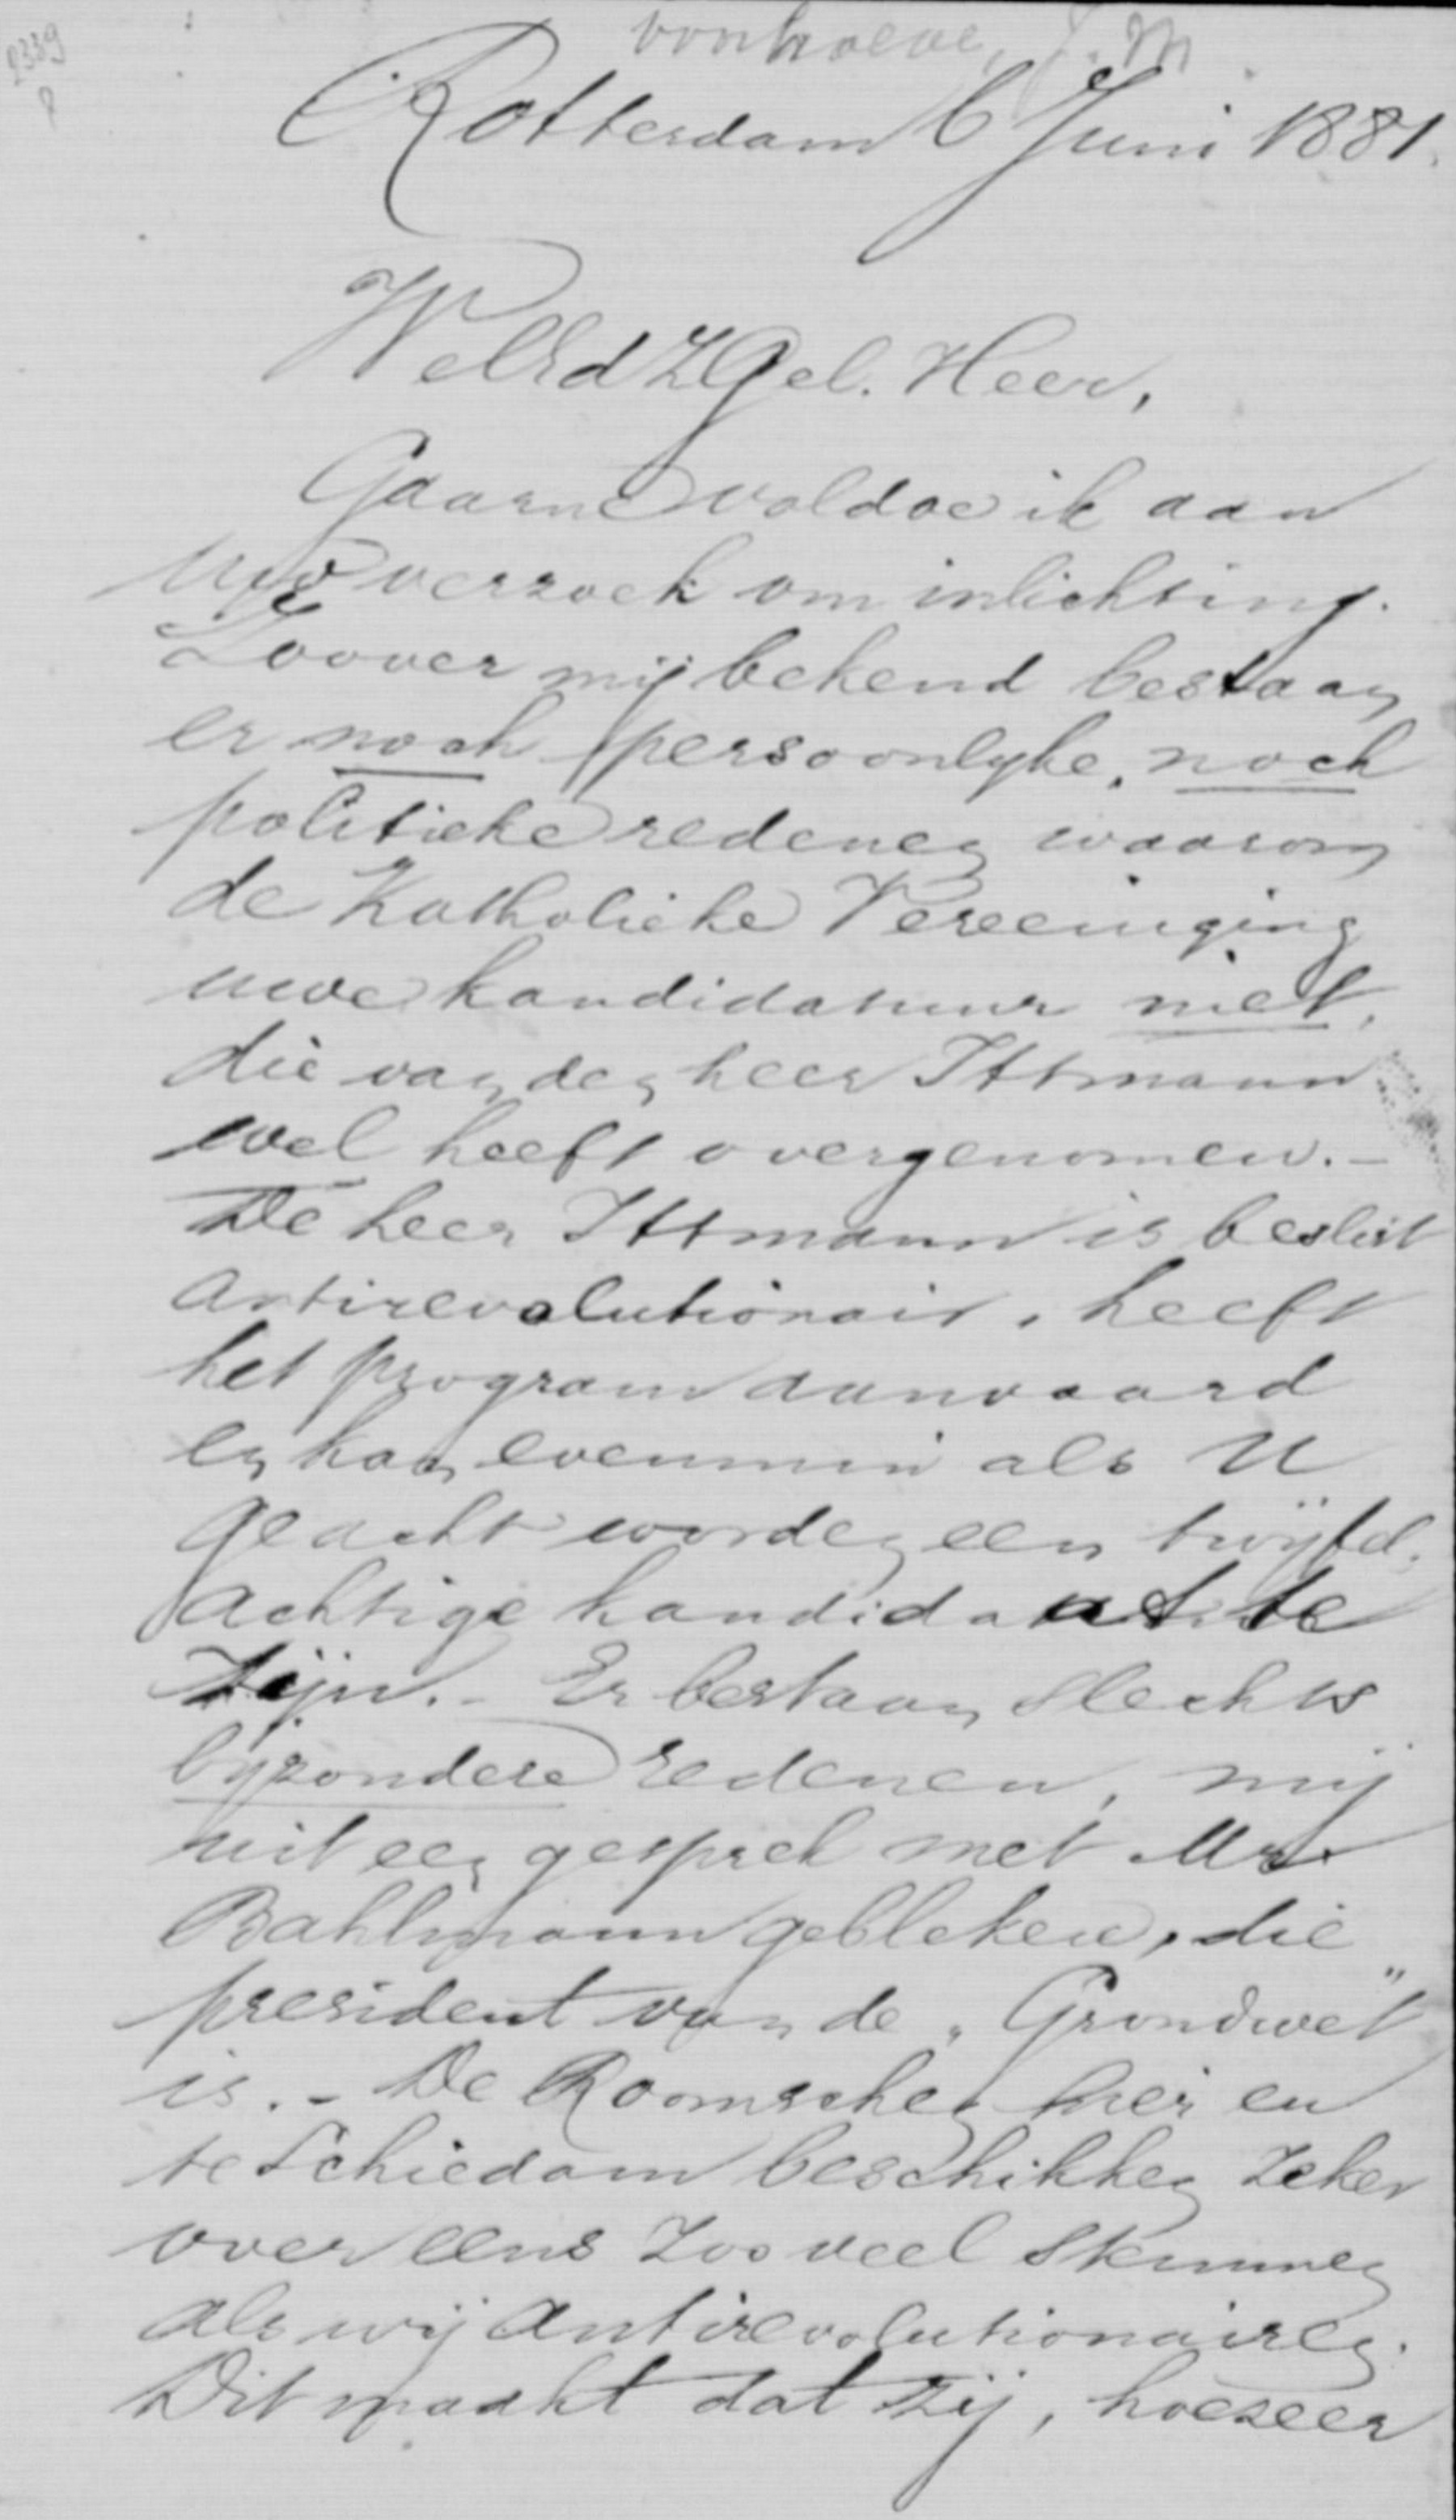 2339
8
vonhoeve, J. M.
Rotterdam 6 Juni 1881.
WelEdZGel. Heer,
Gaarne voldoe ik aan
Uw verzoek om inlichting.
Zoover mij bekend bestaan
er noch persoonlyke, noch
politieke redenen waarom
de Katholieke Vereeniging
uwe kandidatuur niet,
die van den heer Ittmann
wel heeft overgenomen. -
De heer Ittmann is beslist
Antirevolutionair, heeft
het program aanvaard
en kan evenmin als U
geacht worden een twijfel.
achtige kandidaat te
zijn. - Er bestaan slechts
byzondere redenen, mij
uit een gesprek met Mr
Bahlmann gebleken, die
president van de „Grondwet"
is. - De Roomschen hier en
te Schiedam beschikken zeker
over eens zooveel stemmen
als wij antirevolutionairen.
Dit maakt dat zij, hoezeer